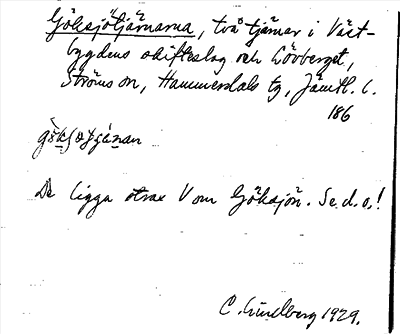 Göksjötjärnarna, två tjärnar i Väst-
bygdens skifteslag och Lövberget,
Ströms sn, Hammerdals tg, Jämtl. l.
186
De ligga strax V om Göksjön. Se d. o.!
C. Lindberg 1929.